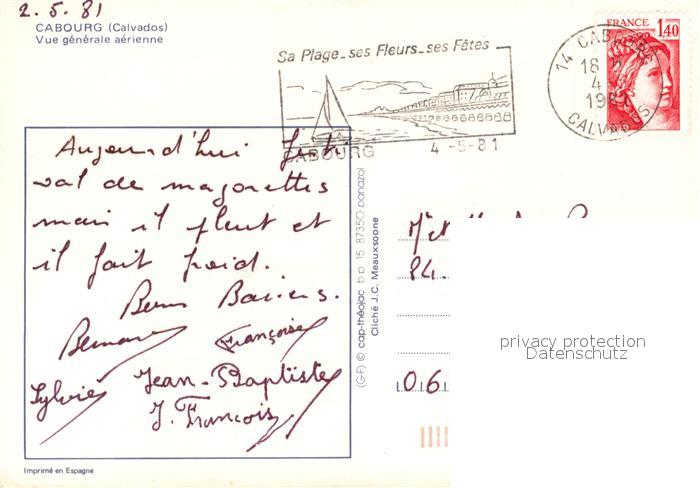 2.5.81
CABOURG (Calvados)
Vue générale aérienne
Sa Plage_ses Fleurs_ses Fêtes
CABOURG
4-5-81
14 CABOURG
18
4
19
CALVADOS
FRANCE
1,40
Aujourd'hui festi
val de majorettes
mais il pleut et
il fait froid.
Bons Baisers.
Bernard Françoise
Sylvie Jean-Baptiste
J. François
(G-F) © cap-théojac b p 15 87350 panazol
Cliché J.C. Meauxsoone
84.
06
privacy protection
Datenschutz
Imprimé en Espagne